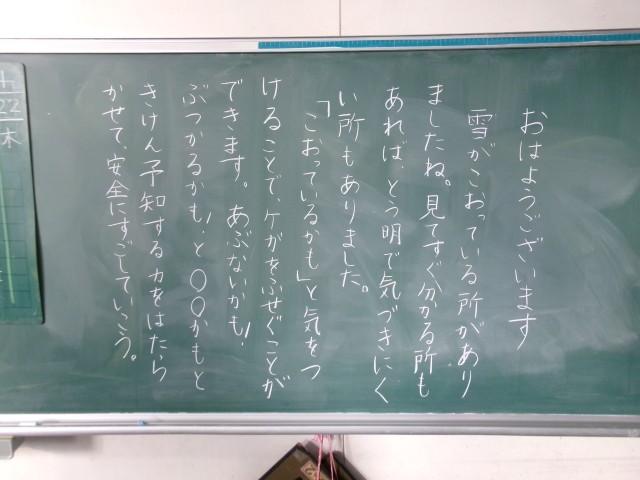 おはようございます
雪がこおっている所があり
ましたね。見てすぐ分かる所も
あれば、とう明で気づきにく
い所もありました。
「こおっているかも」と気をつ
けることで、ケガをふせぐことが
できます。あぶないかも！
ぶつかるかも！と〇〇かもと
きけん予知する力をはたら
かせて、安全にすごしていこう。
22
木